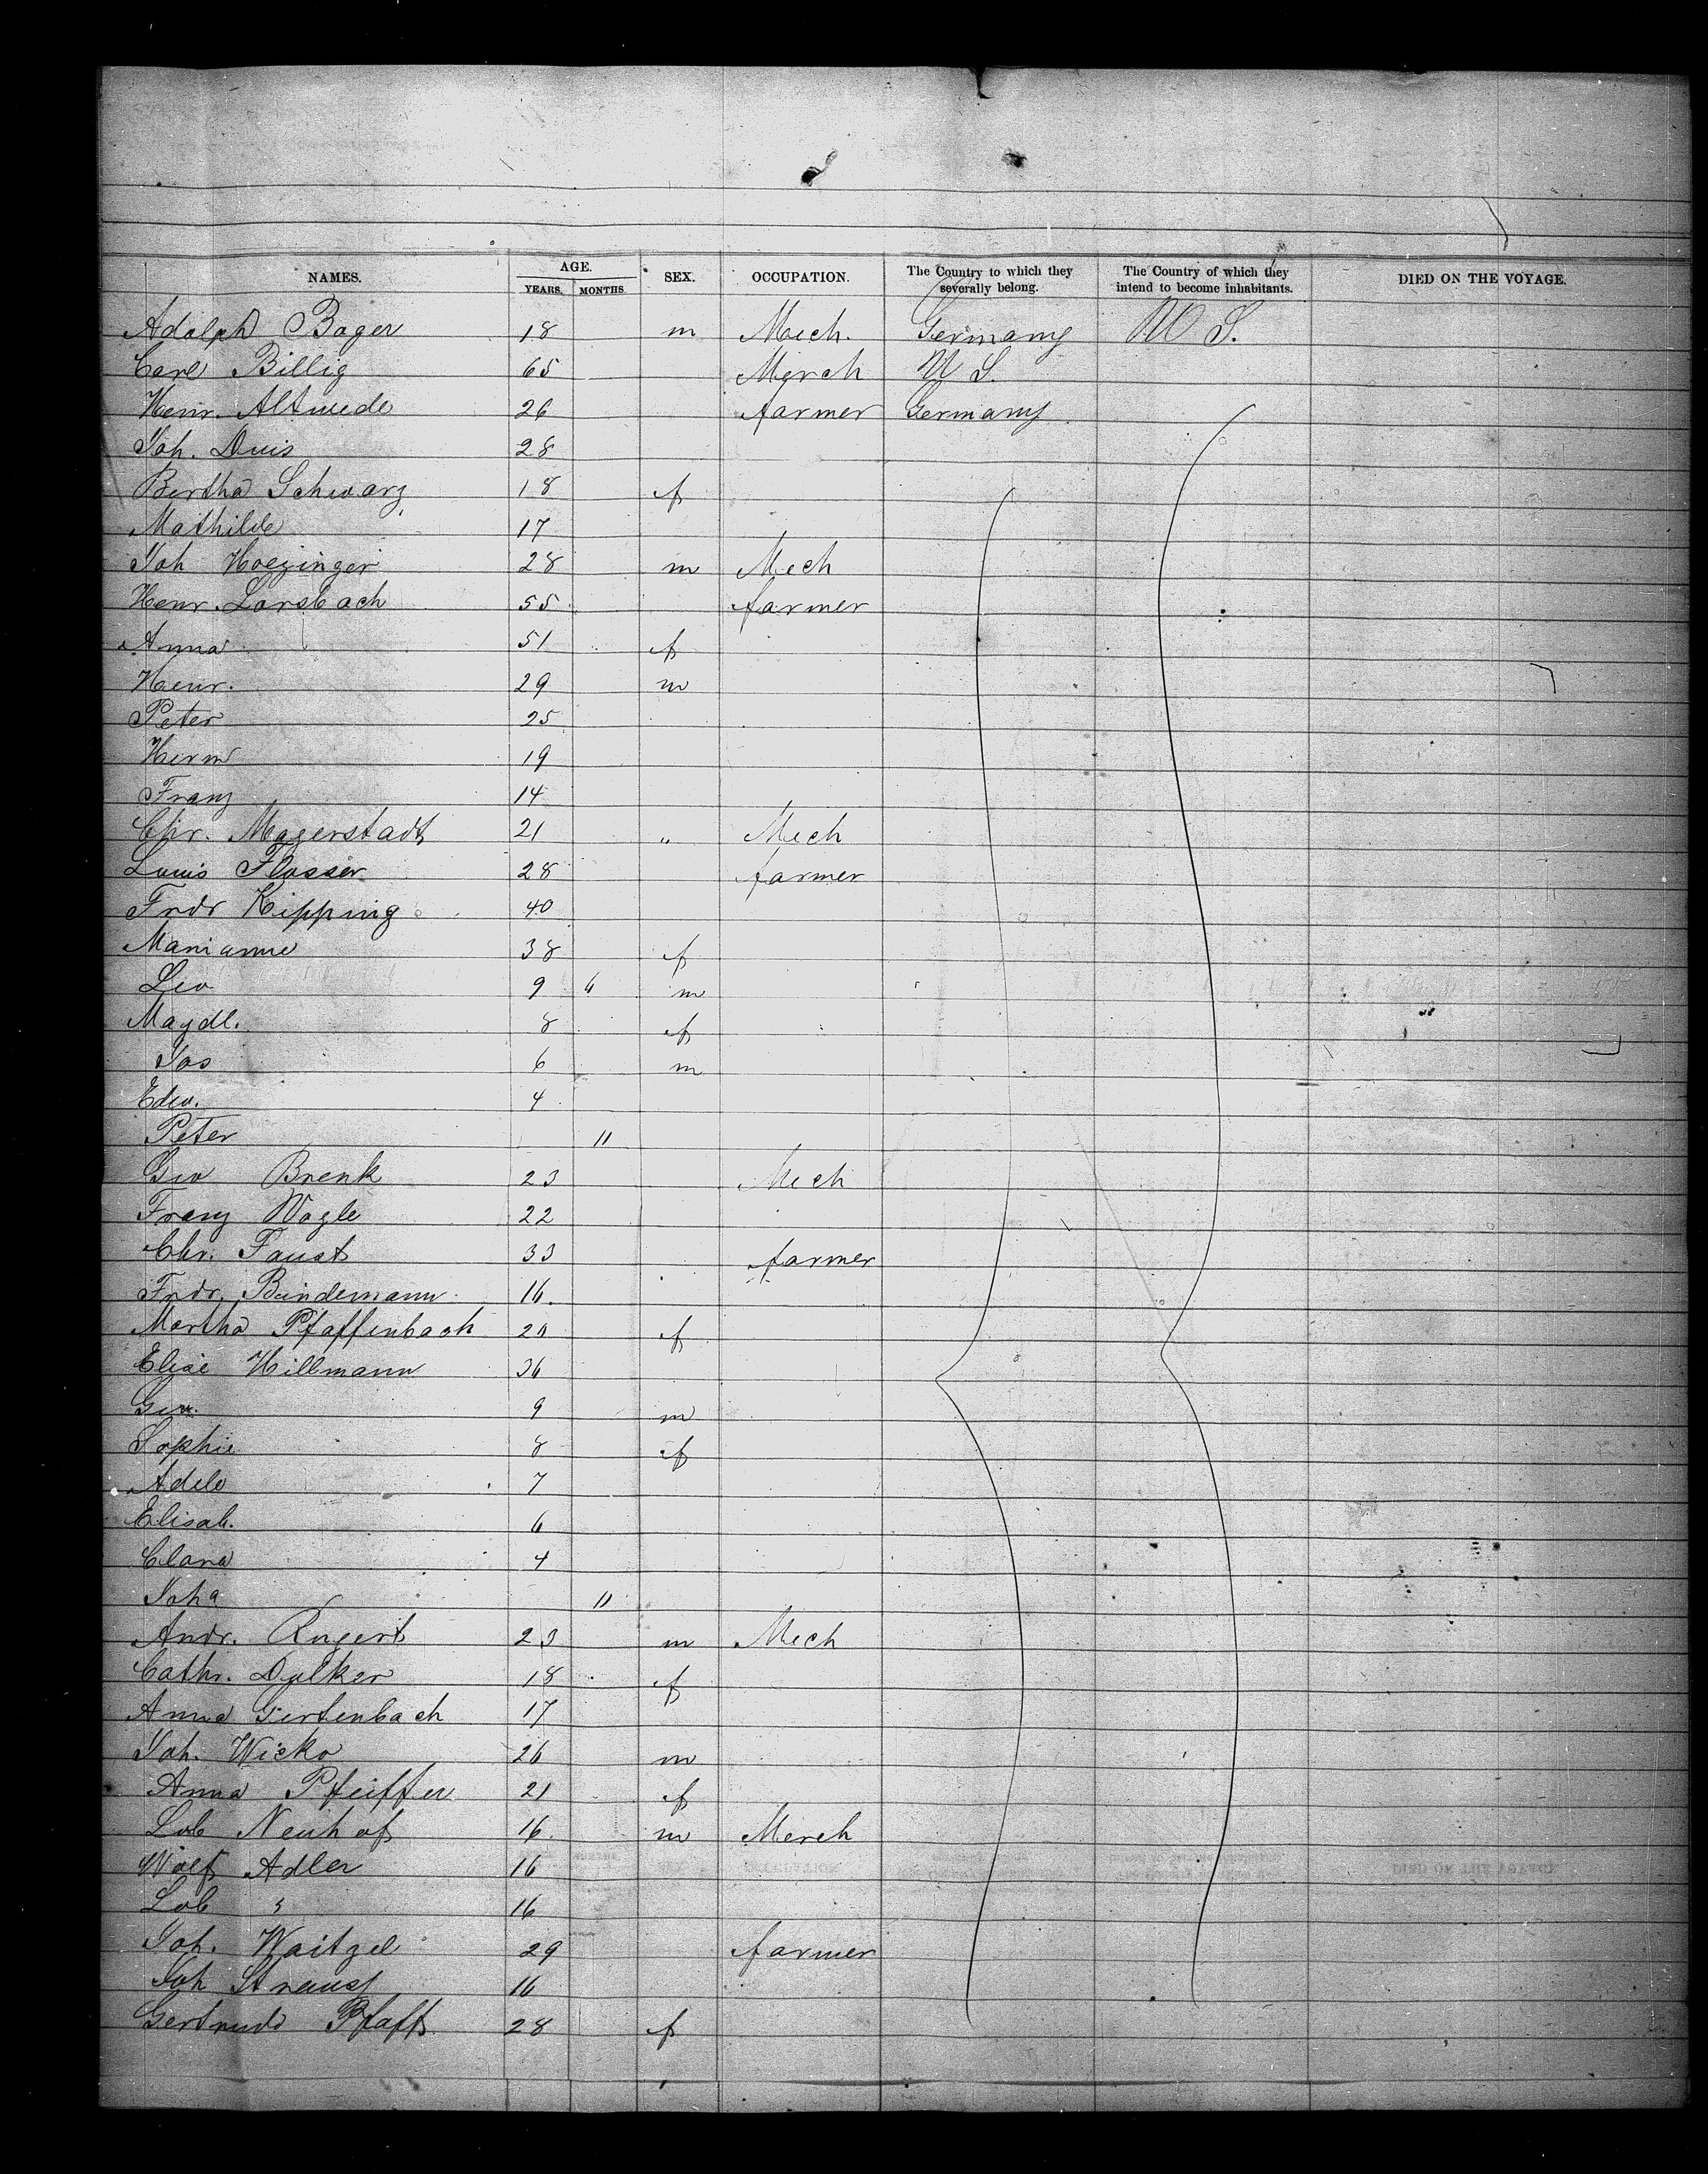 NAMES. AGE. YEARS. MONTHS. SEX. OCCUPATION. The Country to which they severally belong. The Country of which they intend to become inhabitants. DIED ON THE VOYAGE.
Adolph Bager 18 m Mech. Germany U S.
Carl Billig 65 Merch U S.
Henr. Altwede 26 farmer Germany
Joh. Duis 28
Bertha Schwarz 18 f
Mathilde 17
Joh Hoezinger 28 m Mech
Henr. Lorsbach 55 farmer
Anna 51 f
Henr. 29 m
Peter 25
Herm 19
Franz 14
Chr. Magerstadt 21 " Mech
Louis Flosser 28 farmer
Frdr Kipping 40
Marianne 38 f
Leo 9 6 m
Magdl. 8 f
Jos 6 m
Edw. 4
Peter 11
Geo Brenk 23 Mech
Franz Wagle 22
Chr. Faust 33 farmer
Frdr. Bindemann 16.
Martha Pfaffenbach 20 f
Elise Hillmann 36
9 m
Sophie 8 f
Adele 7
Elisab. 6
Clara 4
Joha 11
Andr. Angert 23 m Mech
Cathr. Dalker 18 f
Anna Gertenbach 17
Joh. Wicke 26 m
Anna Pfeiffer 21 f
Lob Neuhof 16 m Merch
Wolf Adler 16
Lob " 16
Joh. Waitzel 29 farmer
Joh Strauss 16
Gertrude Pfaff 28 f